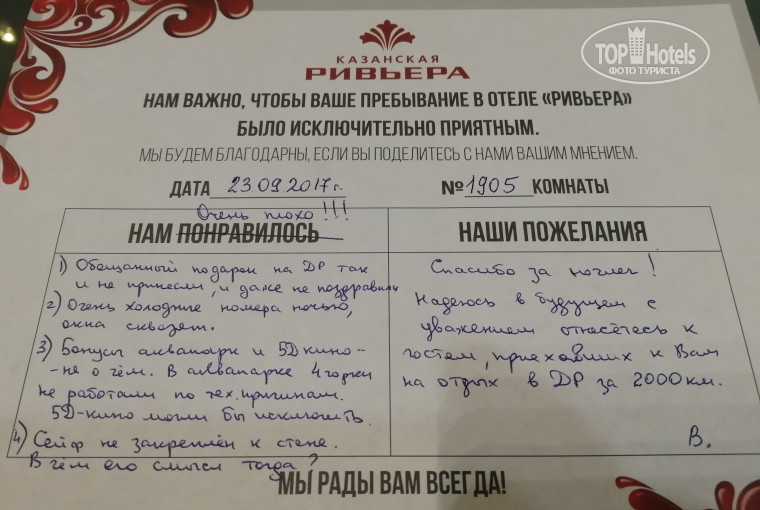 КАЗАНСКАЯ
РИВЬЕРА
TOP Hotels
ФОТО ТУРИСТА
НАМ ВАЖНО, ЧТОБЫ ВАШЕ ПРЕБЫВАНИЕ В ОТЕЛЕ «РИВЬЕРА»
БЫЛО ИСКЛЮЧИТЕЛЬНО ПРИЯТНЫМ.
МЫ БУДЕМ БЛАГОДАРНЫ, ЕСЛИ ВЫ ПОДЕЛИТЕСЬ С НАМИ ВАШИМ МНЕНИЕМ.
ДАТА 23.09.2017г. №1905 КОМНАТЫ
Очень плохо!!!
НАМ ПОНРАВИЛОСЬ
1) Обещанный подарок на ДР так
и не принесли, и даже не поздравили
2) Очень холодные номера ночью,
окна сквозят.
3) Бонусы аквапарк и 5D кино-
-не о чём. В аквапарке 4 горки
не работали по тех. причинам.
5D-кино могли бы исключить.
4) Сейф не закреплён к стене.
В чём его смысл тогда?
НАШИ ПОЖЕЛАНИЯ
Спасибо за ночлег!
Надеюсь в будущем с
уважением отнесётесь к
гостям, приехавших к Вам
на отдых в ДР за 2000км.
В.
МЫ РАДЫ ВАМ ВСЕГДА!
TopHotels